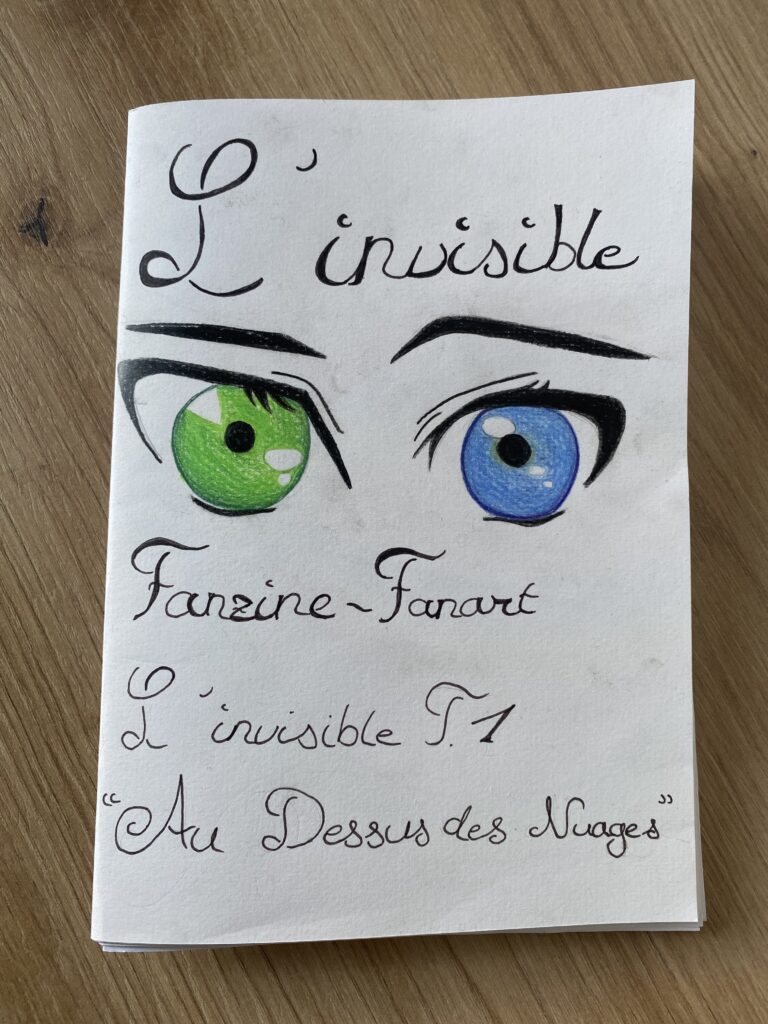 L'invisible
Fanzine~Fanart
L'invisible T.1
"Au Dessus des Nuages"